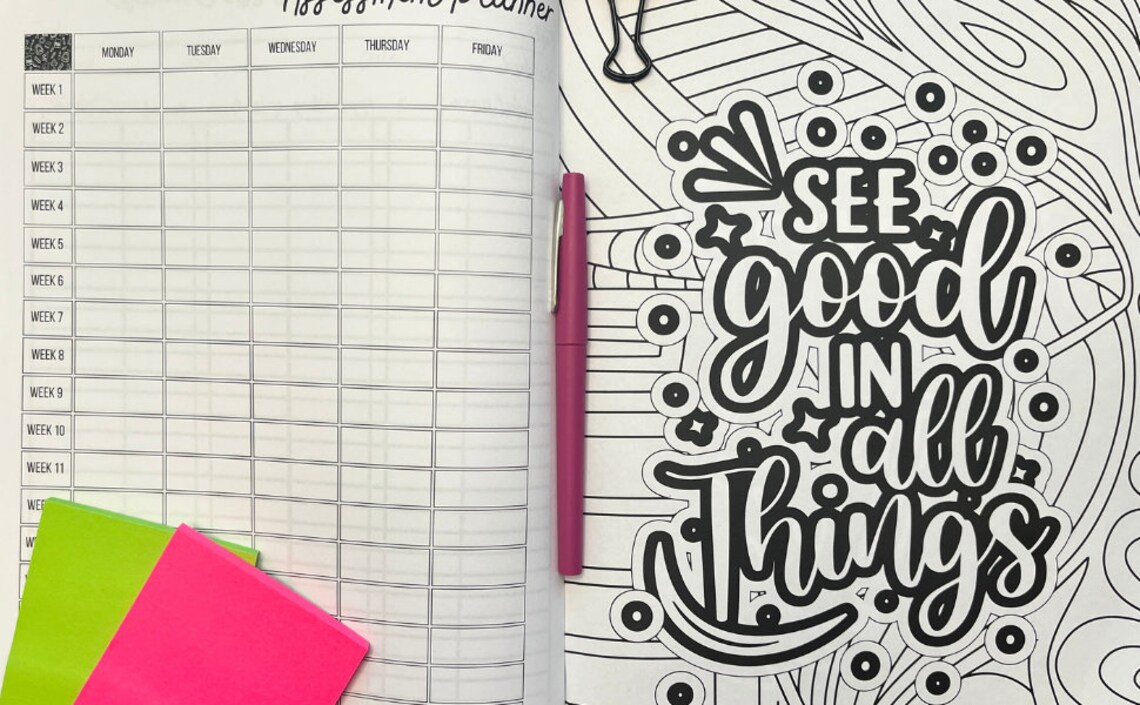 Assessment planner
MONDAY TUESDAY WEDNESDAY THURSDAY FRIDAY
WEEK 1
WEEK 2
WEEK 3
WEEK 4
WEEK 5
WEEK 6
WEEK 7
WEEK 8
WEEK 9
WEEK 10
WEEK 11
SEE
good
IN
all
Things